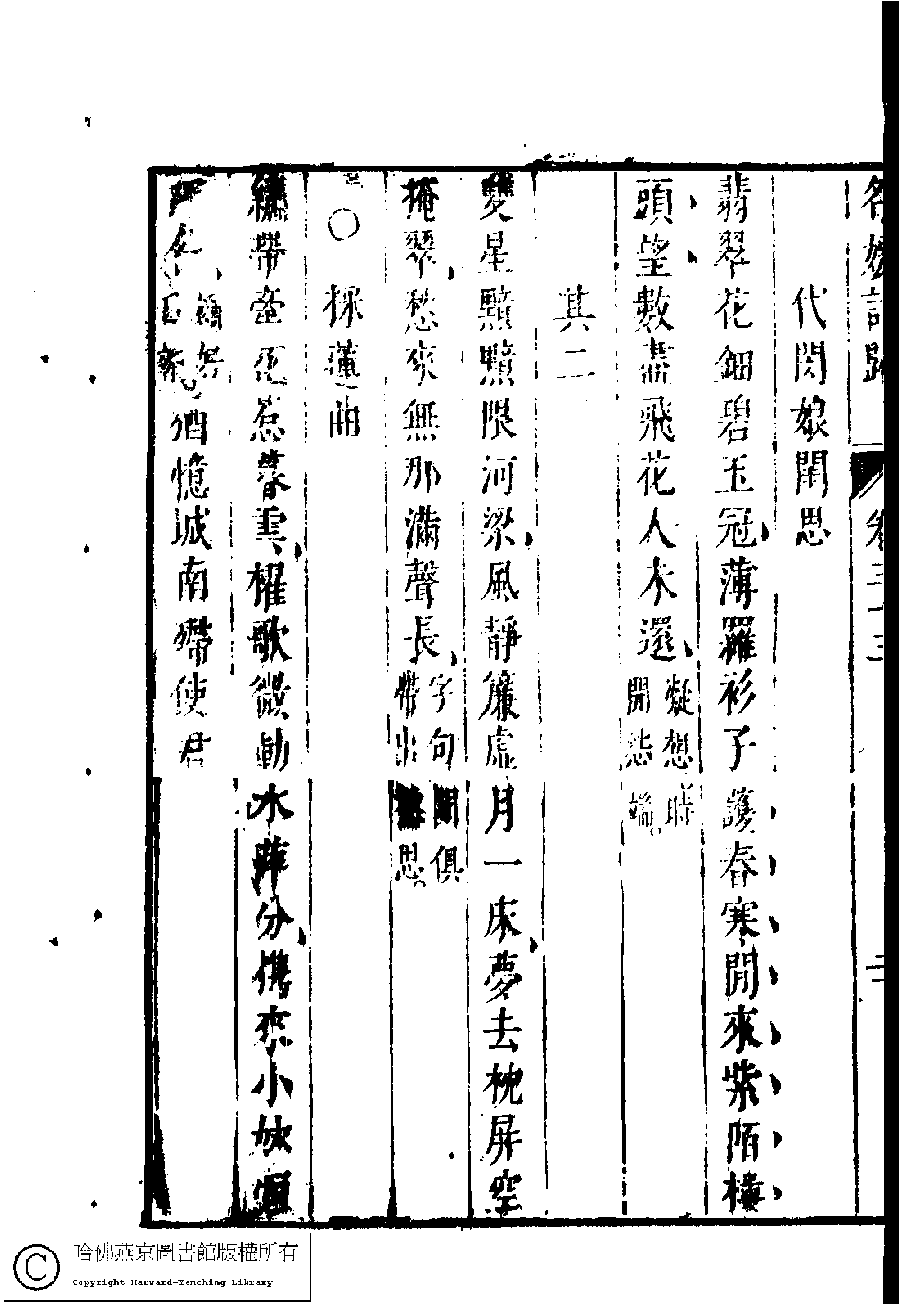 名媛詩歸 卷三十三 二
代閔娘閨思
翡翠花鈿碧玉冠薄羅衫子護春寒閒來紫陌樓
頭望數盡飛花人未還 凝想時開愁端
其二
雙星黯黯限河梁風靜簾虛月一床夢去枕屏空
掩翠愁來無那滿聲長 字句關俱帶出思
○採蓮曲
繡帶 惹暮雲櫂歌微動水萍分攜來小妓
猶憶城南舊使君
哈佛燕京圖書館版權所有
Copyright Harvard-Yenching Library